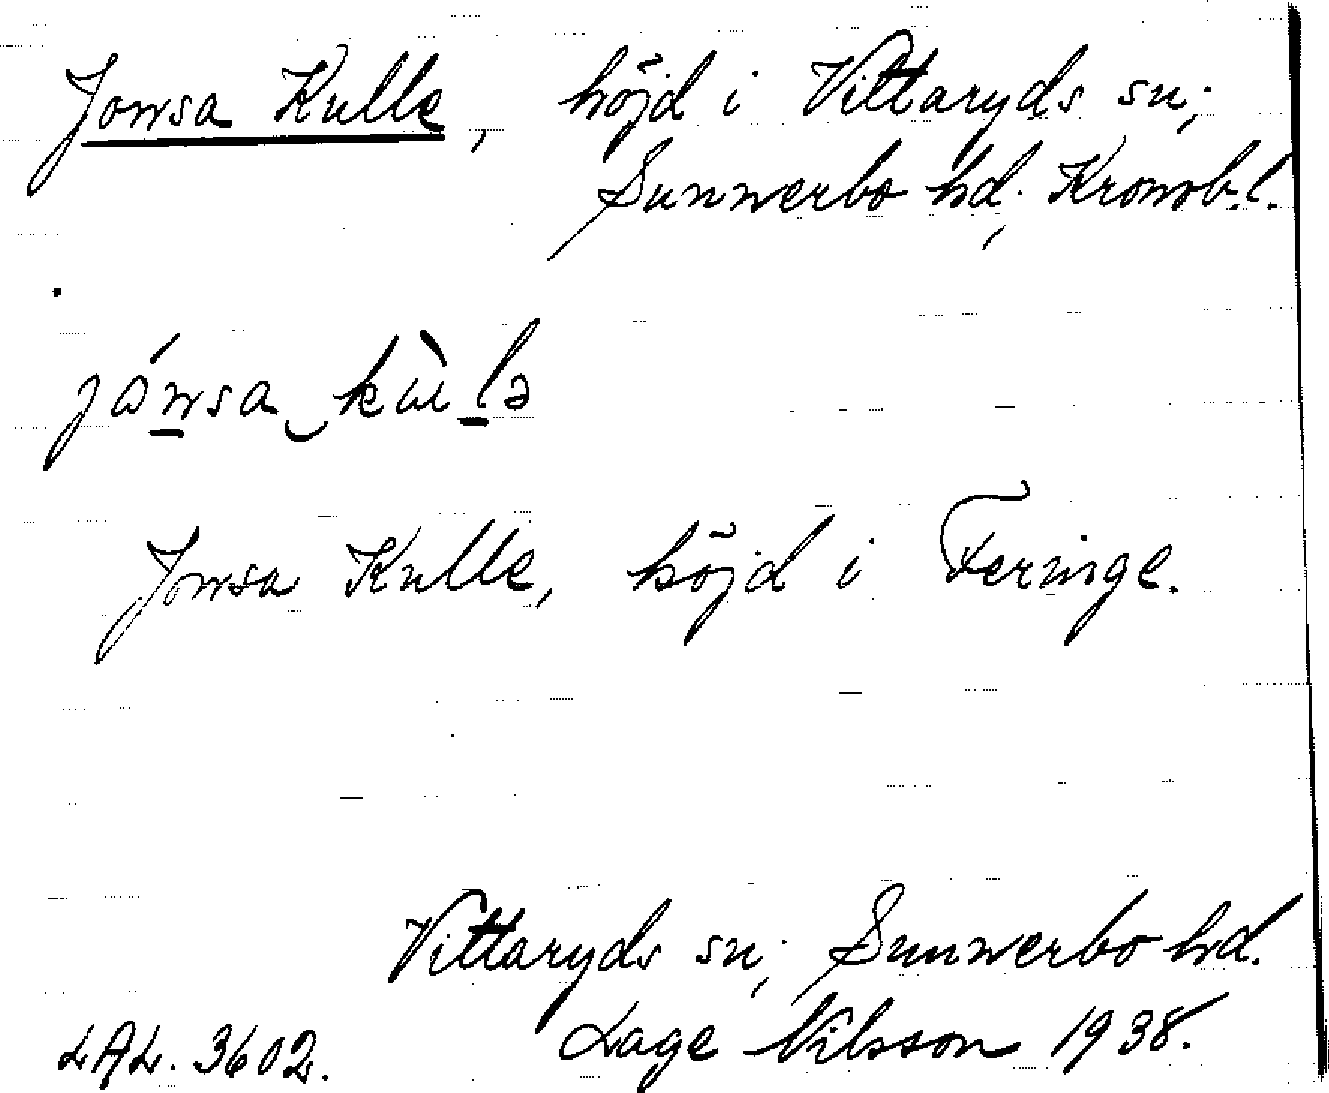 Jonsa Kulle, höjd i Vittaryds sn;
Sunnerbo hd, Kronob.l.
jónsa kùlə
Jonsa Kulle, höjd i Feringe.
Vittaryds sn; Sunnerbo hd.
LAL. 3602. Lage Nilsson 1938.